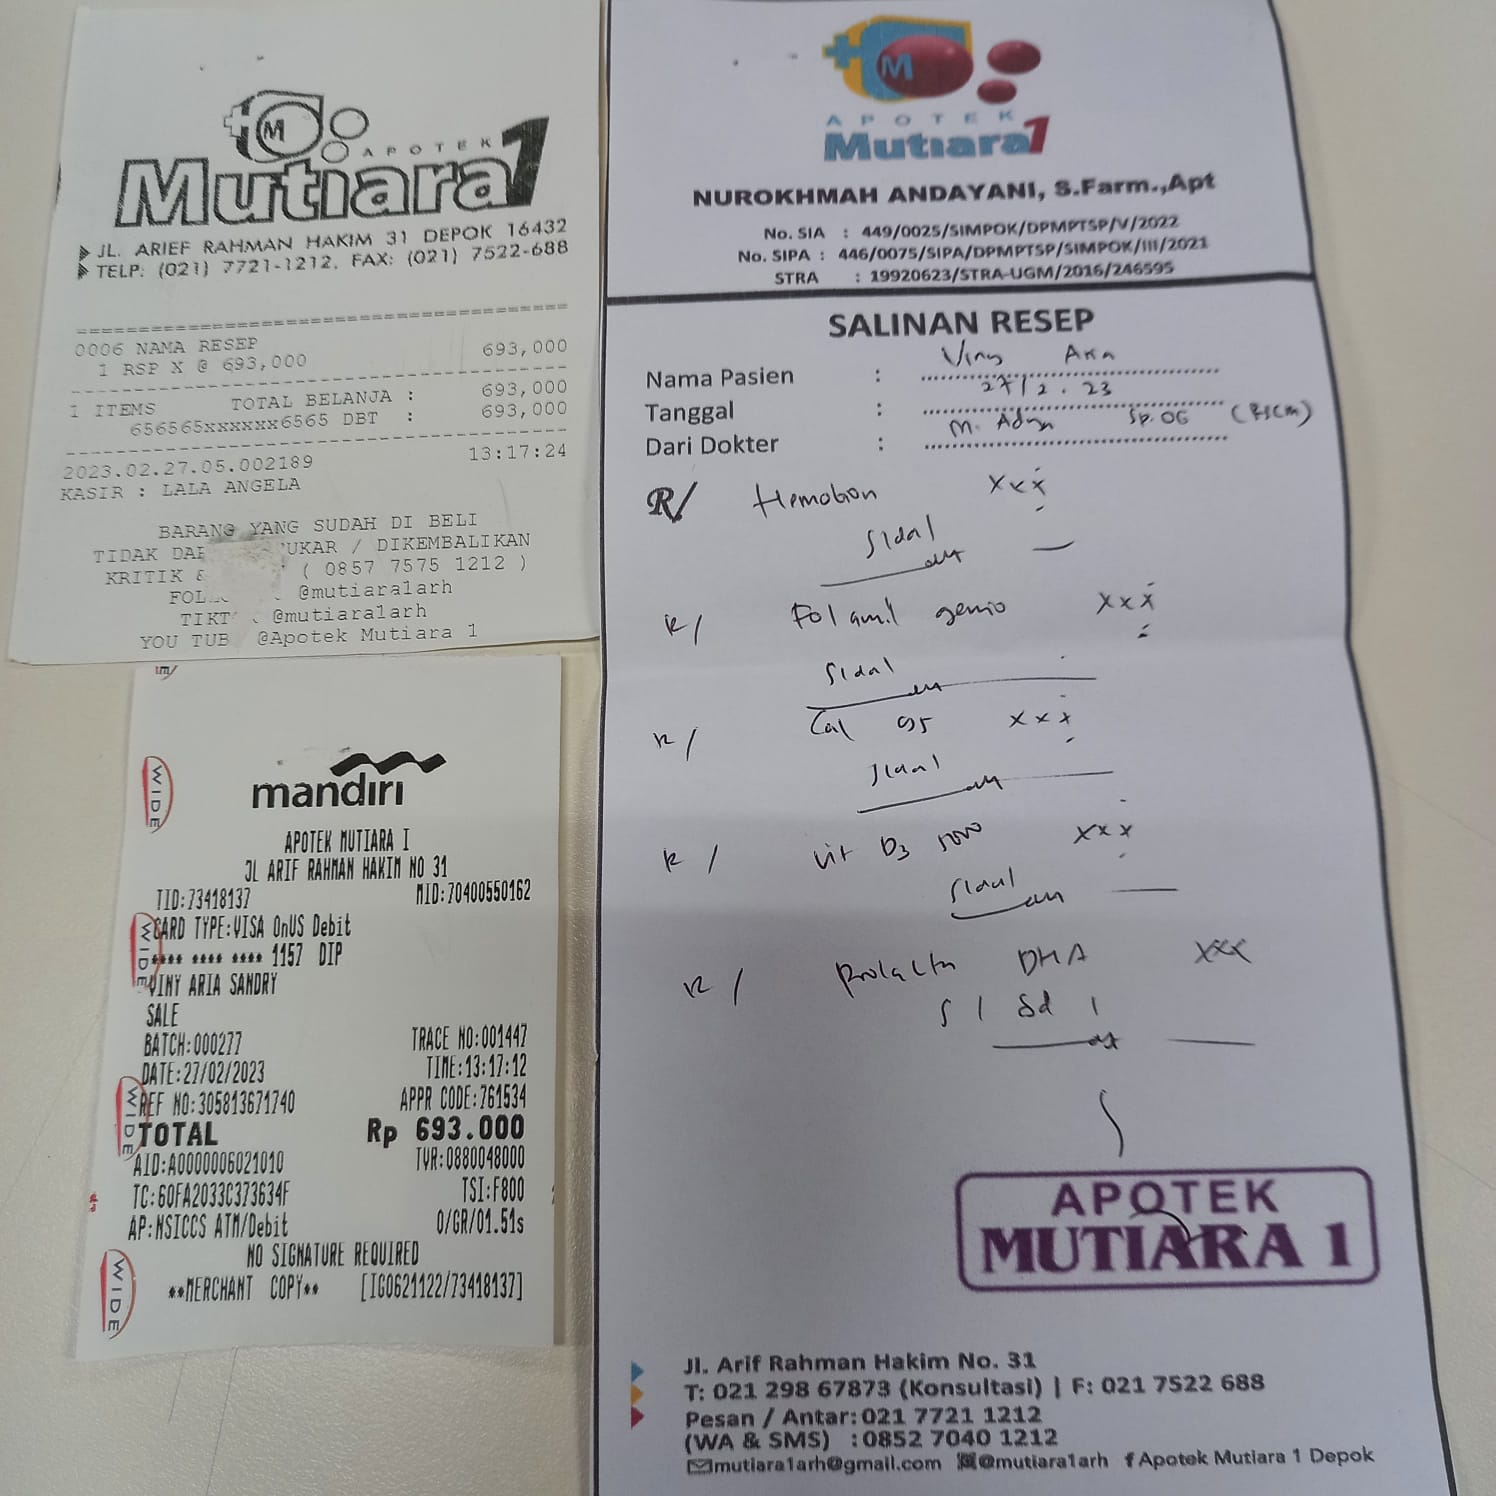 M
APOTEK
Mutiara1
JL. ARIEF RAHMAN HAKIM 31 DEPOK 16432
TELP: (021) 7721-1212. FAX: (021) 7522-688
========================================
0006 NAMA RESEP
1 RSP X @ 693,000 693,000
----------------------------------------
1 ITEMS TOTAL BELANJA : 693,000
656565xxxxxx6565 DBT : 693,000
----------------------------------------
2023.02.27.05.002189 13:17:24
KASIR : LALA ANGELA
BARANG YANG SUDAH DI BELI
TIDAK UKAR / DIKEMBALIKAN
KRITIK & ( 0857 7575 1212 )
@mutiara1arh
@mutiara1arh
YOU TUB @Apotek Mutiara 1
WIDE
mandiri
APOTEK MUTIARA I
JL ARIF RAHMAN HAKIM NO 31
TID:73418137 MID:70400550162
WIDE
CARD TYPE:VISA OnUS Debit
**** **** **** 1157 DIP
VINY ARIA SANDRY
SALE
BATCH:000277 TRACE NO:001447
DATE:27/02/2023 TIME:13:17:12
WIDE
REF NO:305813671740 APPR CODE:761534
TOTAL Rp 693.000
AID:A0000006021010 TVR:0880048000
TC:60FA2033C373634F TSI:F800
AP:NSICCS ATM/Debit O/GR/01.51s
NO SIGNATURE REQUIRED
WIDE
**MERCHANT COPY** [IG0621122/73418137]
M
APOTEK
Mutiara1
NUROKHMAH ANDAYANI, S.Farm.,Apt
No. SIA : 449/0025/SIMPOK/DPMPTSP/V/2022
No. SIPA : 446/0075/SIPA/DPMPTSP/SIMPOK/III/2021
STRA : 19920623/STRA-UGM/2016/246595
SALINAN RESEP
Nama Pasien : Viny
Tanggal : 27/2.23
Dari Dokter : M. Sp.OG (RSCM)
R/ Hemobion xxx
S1dd1
R/ Folamil genio xxx
S1dd1
R/ Cal 95 xxx
S1dd1
R/ Vit D3 5000 xxx
S1dd1
R/ Prolacta DHA xxx
S 1 dd 1
APOTEK
MUTIARA 1
Jl. Arif Rahman Hakim No. 31
T: 021 298 67873 (Konsultasi) | F: 021 7522 688
Pesan / Antar: 021 7721 1212
(WA & SMS) : 0852 7040 1212
mutiara1arh@gmail.com @mutiara1arh f Apotek Mutiara 1 Depok